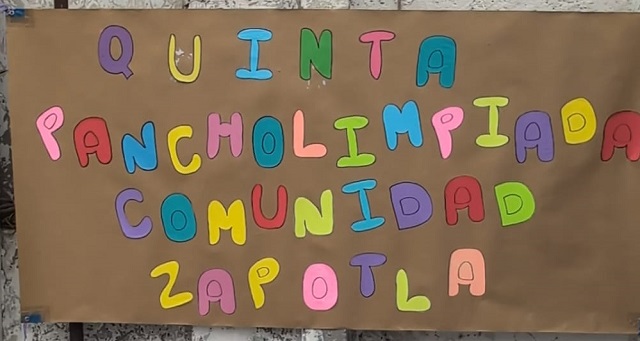 QUINTA
PANCHOLIMPIADA
COMUNIDAD
ZAPOTLA